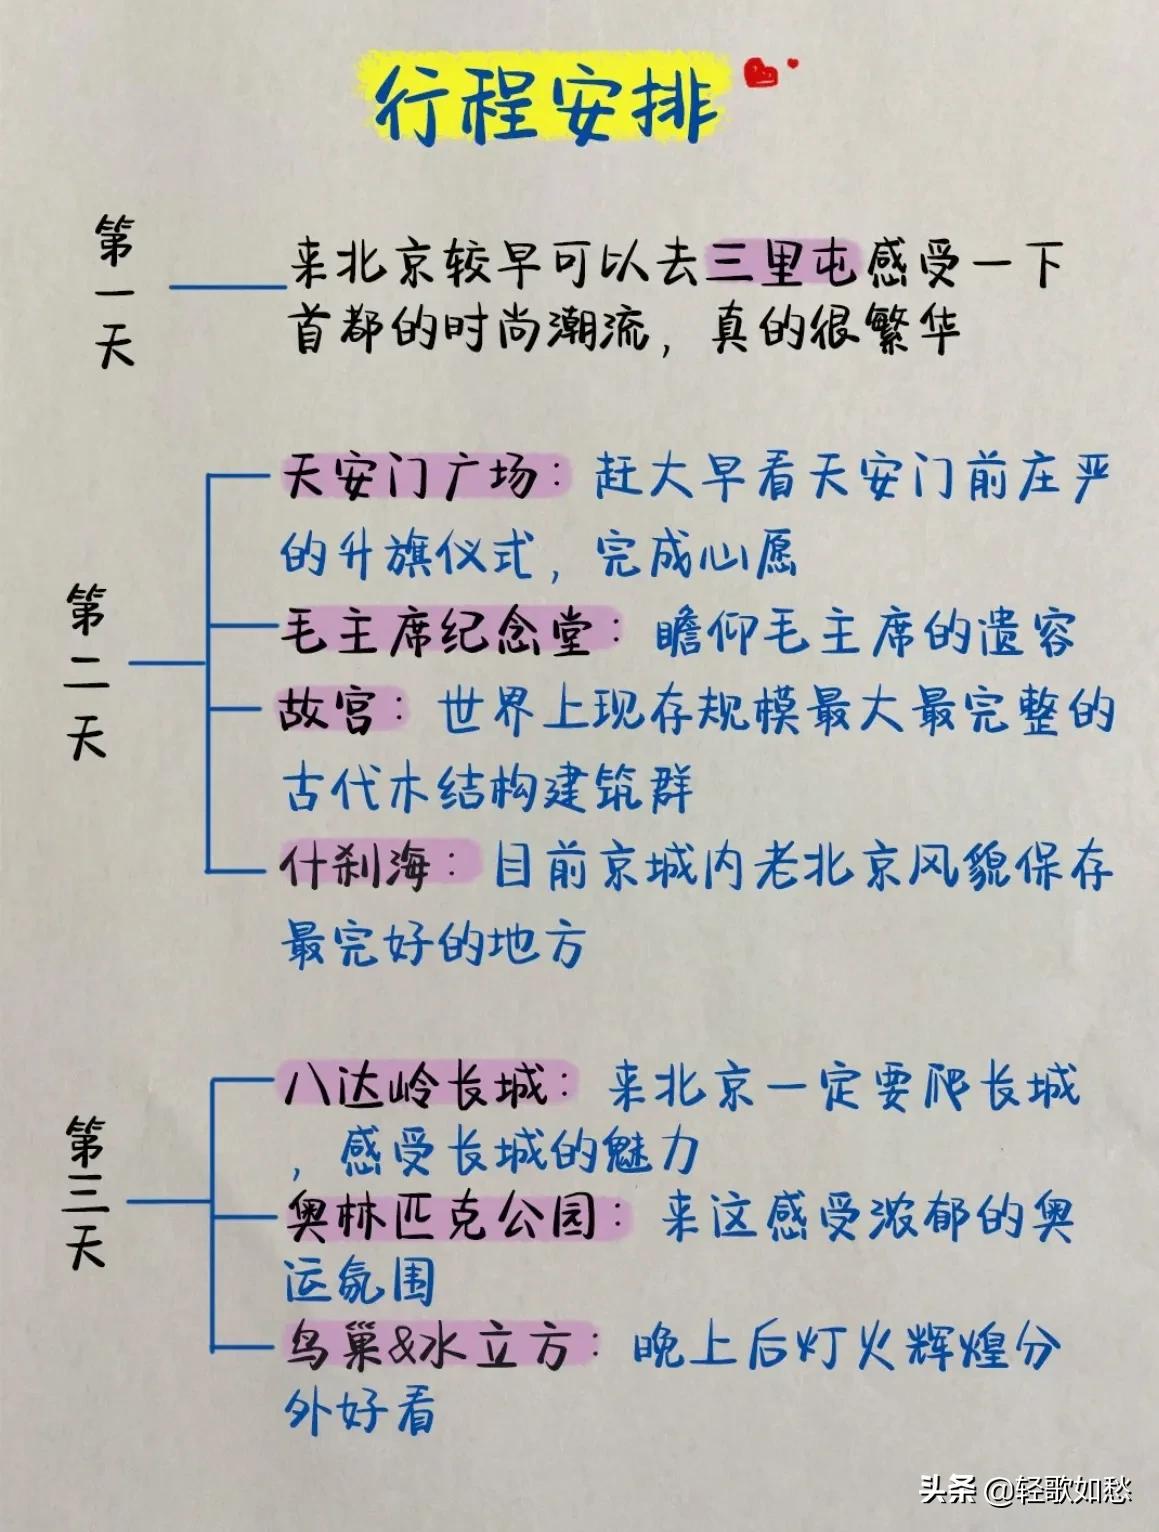 行程安排
第一天
来北京较早可以去三里屯感受一下
首都的时尚潮流，真的很繁华
第二天
天安门广场：赶大早看天安门前庄严
的升旗仪式，完成心愿
毛主席纪念堂：瞻仰毛主席的遗容
故宫：世界上现存规模最大最完整的
古代木结构建筑群
什刹海：目前京城内老北京风貌保存
最完好的地方
第三天
八达岭长城：来北京一定要爬长城
，感受长城的魅力
奥林匹克公园：来这感受浓郁的奥
运氛围
鸟巢&水立方：晚上后灯火辉煌分
外好看
头条 @轻歌如愁